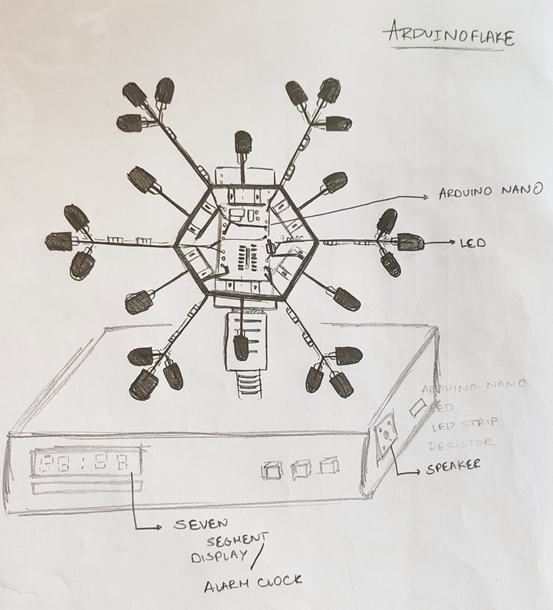 ARDUINOFLAKE
ARDUINO NANO
LED
ARDUINO NANO
LED
LED STRIP
RESISTOR
SPEAKER
SEVEN
SEGMENT
DISPLAY/
ALARM CLOCK